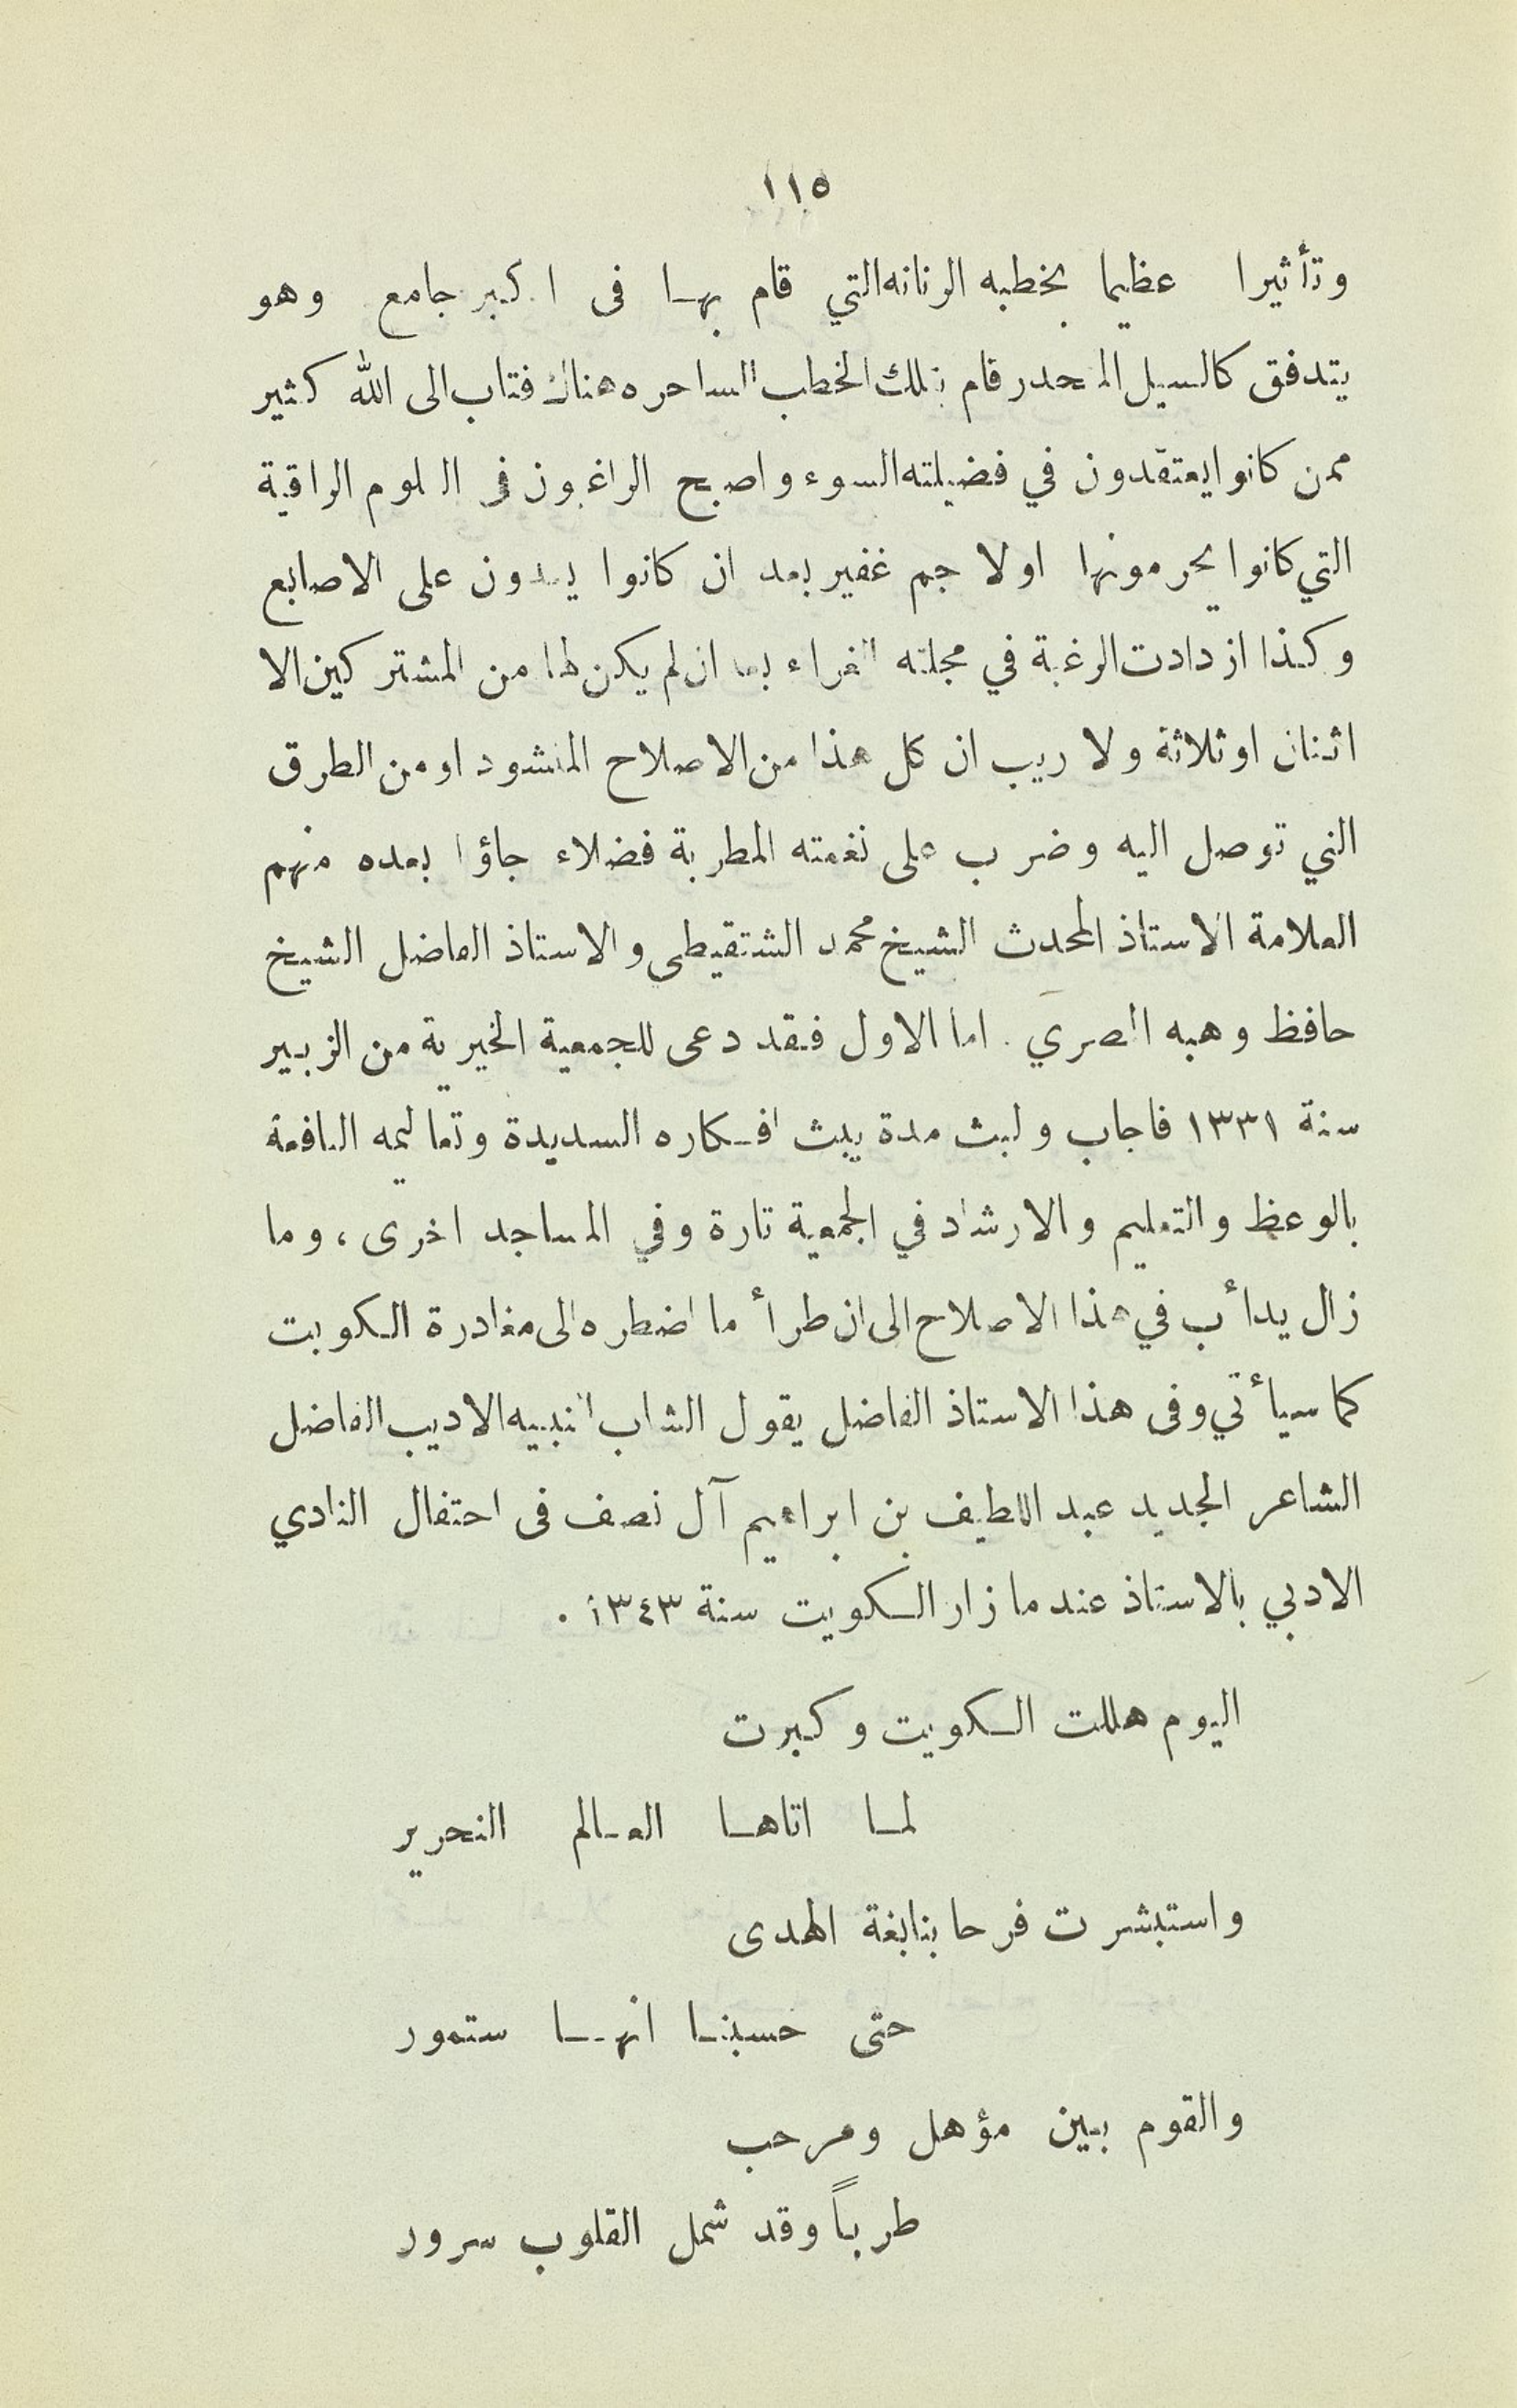 ١١٥
وتأثيرا عظيما بخطبه الرنانه التي قام بها فى اكبر جامع وهو
يتدفق كالسيل المنحدر قام بتلك الخطب الساحره هناك فتاب الى الله كثير
ممن كانوا يعتقدون في فضيلته السوء واصبح الراغبون في العلوم الراقية
التي كانوا يحرمونها اولا جم غفير بعد ان كانوا يعدون على الاصابع
وكذا ازدادت الرغبة في مجلته الغراء بعد ان لم يكن لها من المشتركين الا
اثنان اوثلاثة ولا ريب ان كل هذا من الاصلاح المنشود او من الطرق
التي توصل اليه وضرب على نغمته المطربة فضلاء جاؤا بعده منهم
العلامة الاستاذ المحدث الشيخ محمد الشنقيطى والاستاذ الفاضل الشيخ
حافظ وهبه المصري . اما الاول فقد دعى للجمعية الخيرية من الزبير
سنة ١٣٣١ فاجاب ولبث مدة يبث افكاره السديدة وتعاليمه النافعة
بالوعظ والتعليم والارشاد في الجمعية تارة وفي المساجد اخرى ، وما
زال يدأب في هذا الاصلاح الى ان طرأ ما اضطره الى مغادرة الكويت
كما سيأتي وفى هذا الاستاذ الفاضل يقول الشاب النبيه الاديب الفاضل
الشاعر الجديد عبد اللطيف بن ابراهيم آل نصف فى احتفال النادي
الادبي بالاستاذ عند ما زار الكويت سنة ١٣٤٣ .
اليوم هللت الكويت وكبرت
لما اتاها العالم النحرير
واستبشرت فرحا بنابغة الهدى
حتى حسبنا انها ستمور
والقوم بين مؤهل ومرحب
طرباً وقد شمل القلوب سرور